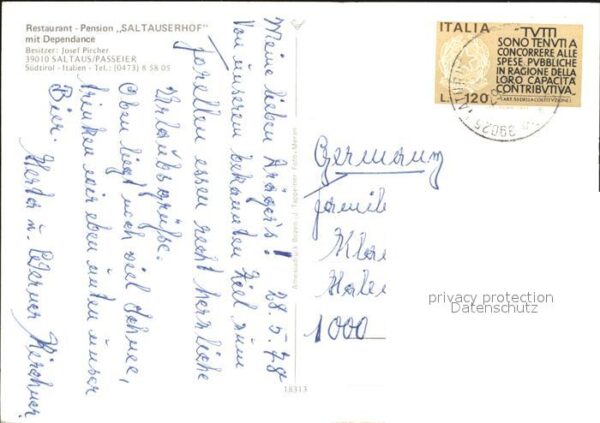 Restaurant - Pension „SALTAUSERHOF"
mit Dependance
Besitzer: Josef Pircher
39010 SALTAUS/PASSEIER
Südtirol - Italien - Tel.: (0473) 8 58 05
Meine lieben 28.5.78
Von unseren bekannten Ziel zum
Forellen essen recht herzliche
Urlaubsgrüße.
Oben liegt noch viel Schnee,
trinken wir eben unten unser
Bier.
Herta u. Werner Kirchner
18313
ITALIA
"TUTTI
SONO TENUTI A
CONCORRERE ALLE
SPESE PUBBLICHE
IN RAGIONE DELLA
LORO CAPACITÀ
CONTRIBUTIVA„
(ART. 53 DELLA COSTITUZIONE)
L. 120
39025
Germany
Famili
1000
privacy protection
Datenschutz